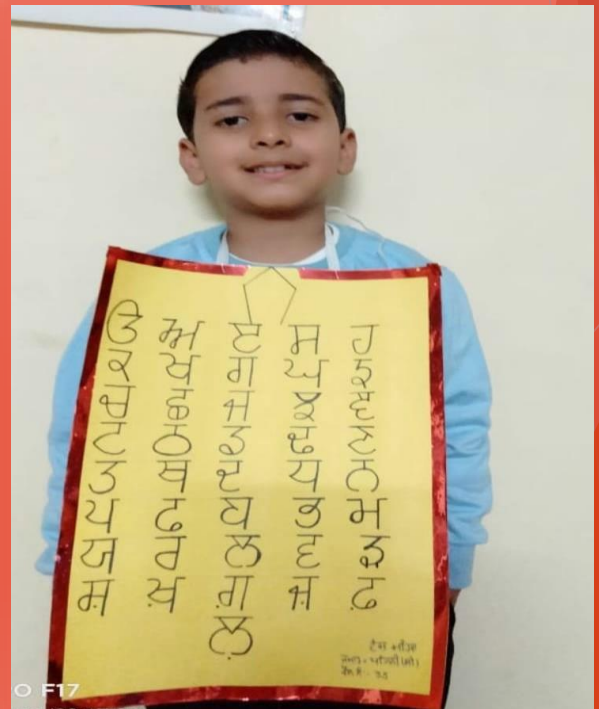 ੳ ਅ ੲ ਸ ਹ
ਕ ਖ ਗ ਘ ਙ
ਚ ਛ ਜ ਝ ਞ
ਟ ਠ ਡ ਢ ਣ
ਤ ਥ ਦ ਧ ਨ
ਪ ਫ ਬ ਭ ਮ
ਯ ਰ ਲ ਵ ੜ
ਸ਼ ਖ਼ ਗ਼ ਜ਼ ਫ਼
ਲ਼
O F17